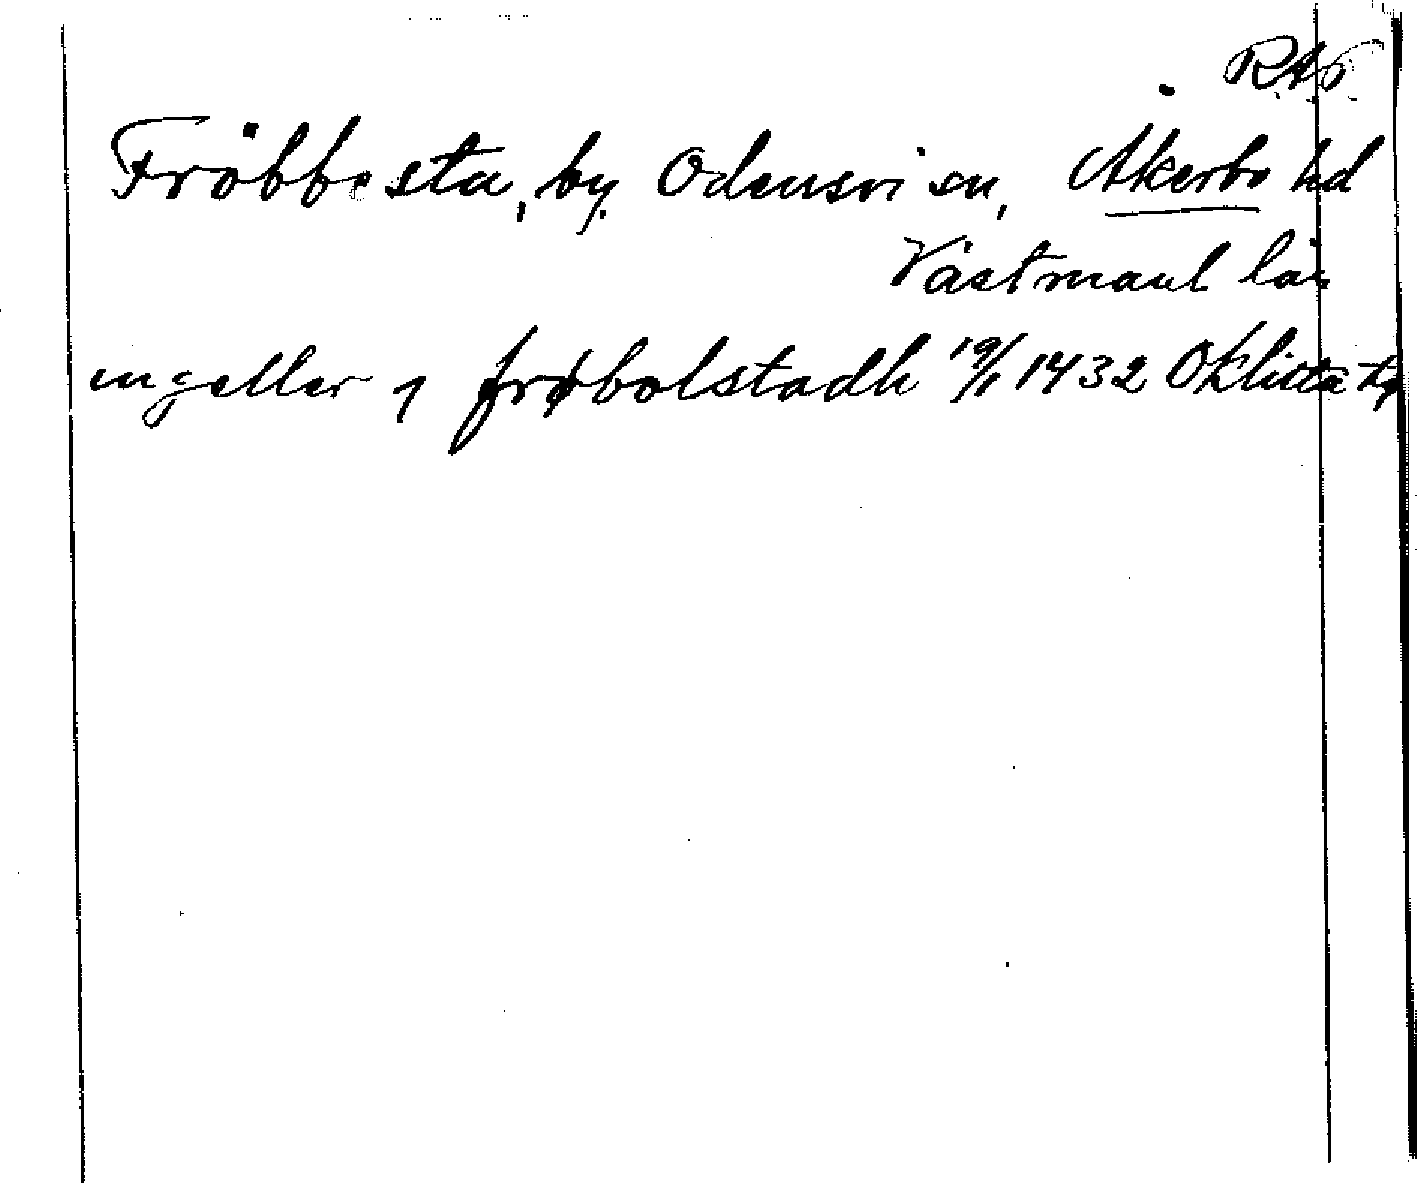 RAP
Fröbbesta, by. Odensvi sn, Åkerbo hd
Västmanl län
ingeller j frøbolstadh 19/1 1432